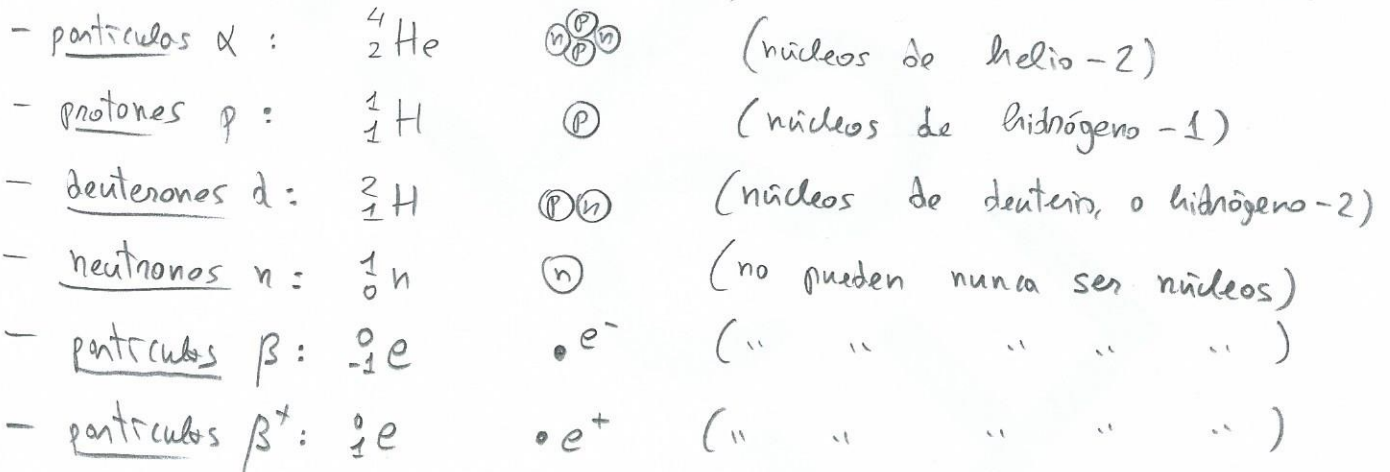 - partículas α : ⁴₂He (n)(p)(p)(n) (núcleos de helio-2)
- protones p : ¹₁H (p) (núcleos de hidrógeno-1)
- deuterones d : ²₁H (p)(n) (núcleos de deuterio, o hidrógeno-2)
- neutronos n : ¹₀n (n) (no pueden nunca ser núcleos)
- partículas β : ⁰₋₁e • e⁻ (" " " " ")
- partículas β⁺ : ⁰₁e • e⁺ (" " " " ")